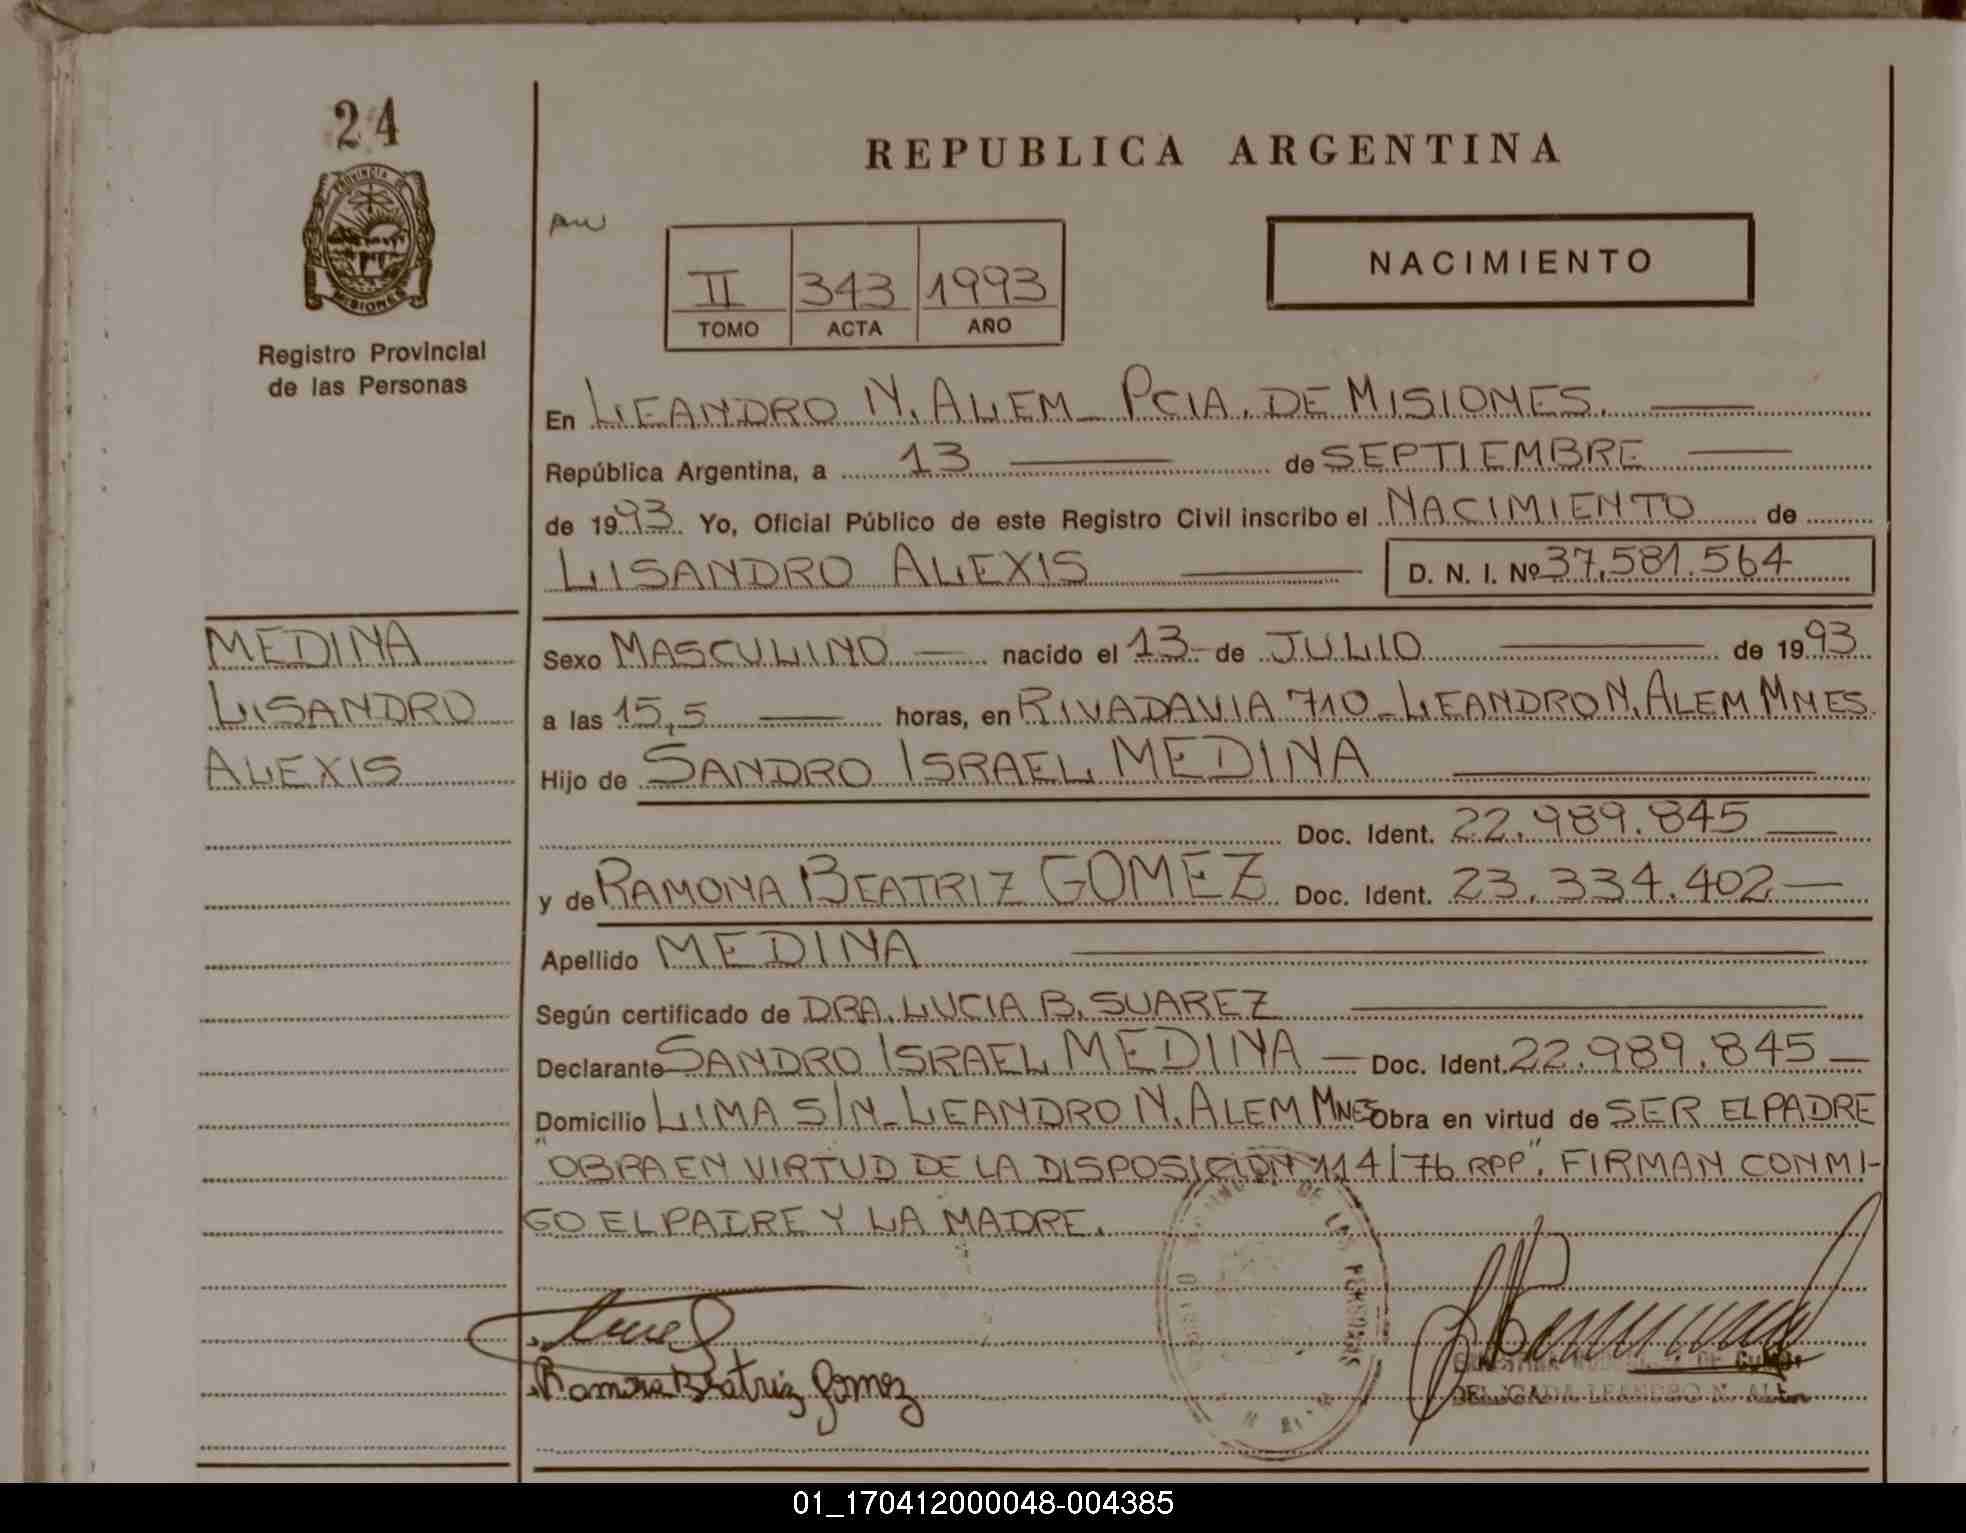 24
PROVINCIA DE
MISIONES
Registro Provincial
de las Personas
MEDINA
LISANDRO
ALEXIS
REPUBLICA ARGENTINA
II 343 1993
TOMO ACTA AÑO
NACIMIENTO
En LEANDRO N. ALEM - PCIA. DE MISIONES.
República Argentina, a 13 de SEPTIEMBRE
de 1993 Yo, Oficial Público de este Registro Civil inscribo el NACIMIENTO de
LISANDRO ALEXIS D. N. I. Nº 37.581.564
Sexo MASCULINO nacido el 13 de JULIO de 1993
a las 15,5 horas, en RIVADAVIA 710 - LEANDRO N. ALEM MNES.
Hijo de SANDRO ISRAEL MEDINA
Doc. Ident. 22.989.845
y de RAMONA BEATRIZ GOMEZ Doc. Ident. 23.334.402
Apellido MEDINA
Según certificado de DRA. LUCIA B. SUAREZ
Declarante SANDRO ISRAEL MEDINA - Doc. Ident. 22.989.845
Domicilio LIMA S/N - LEANDRO N. ALEM MNES Obra en virtud de SER EL PADRE
"OBRA EN VIRTUD DE LA DISPOSICION 114/76 RPP". FIRMAN CONMI-
GO EL PADRE Y LA MADRE.
DE LAS PERSONAS
Ramona Beatriz Gomez
DELEGADA LEANDRO N. ALEM
01_170412000048-004385